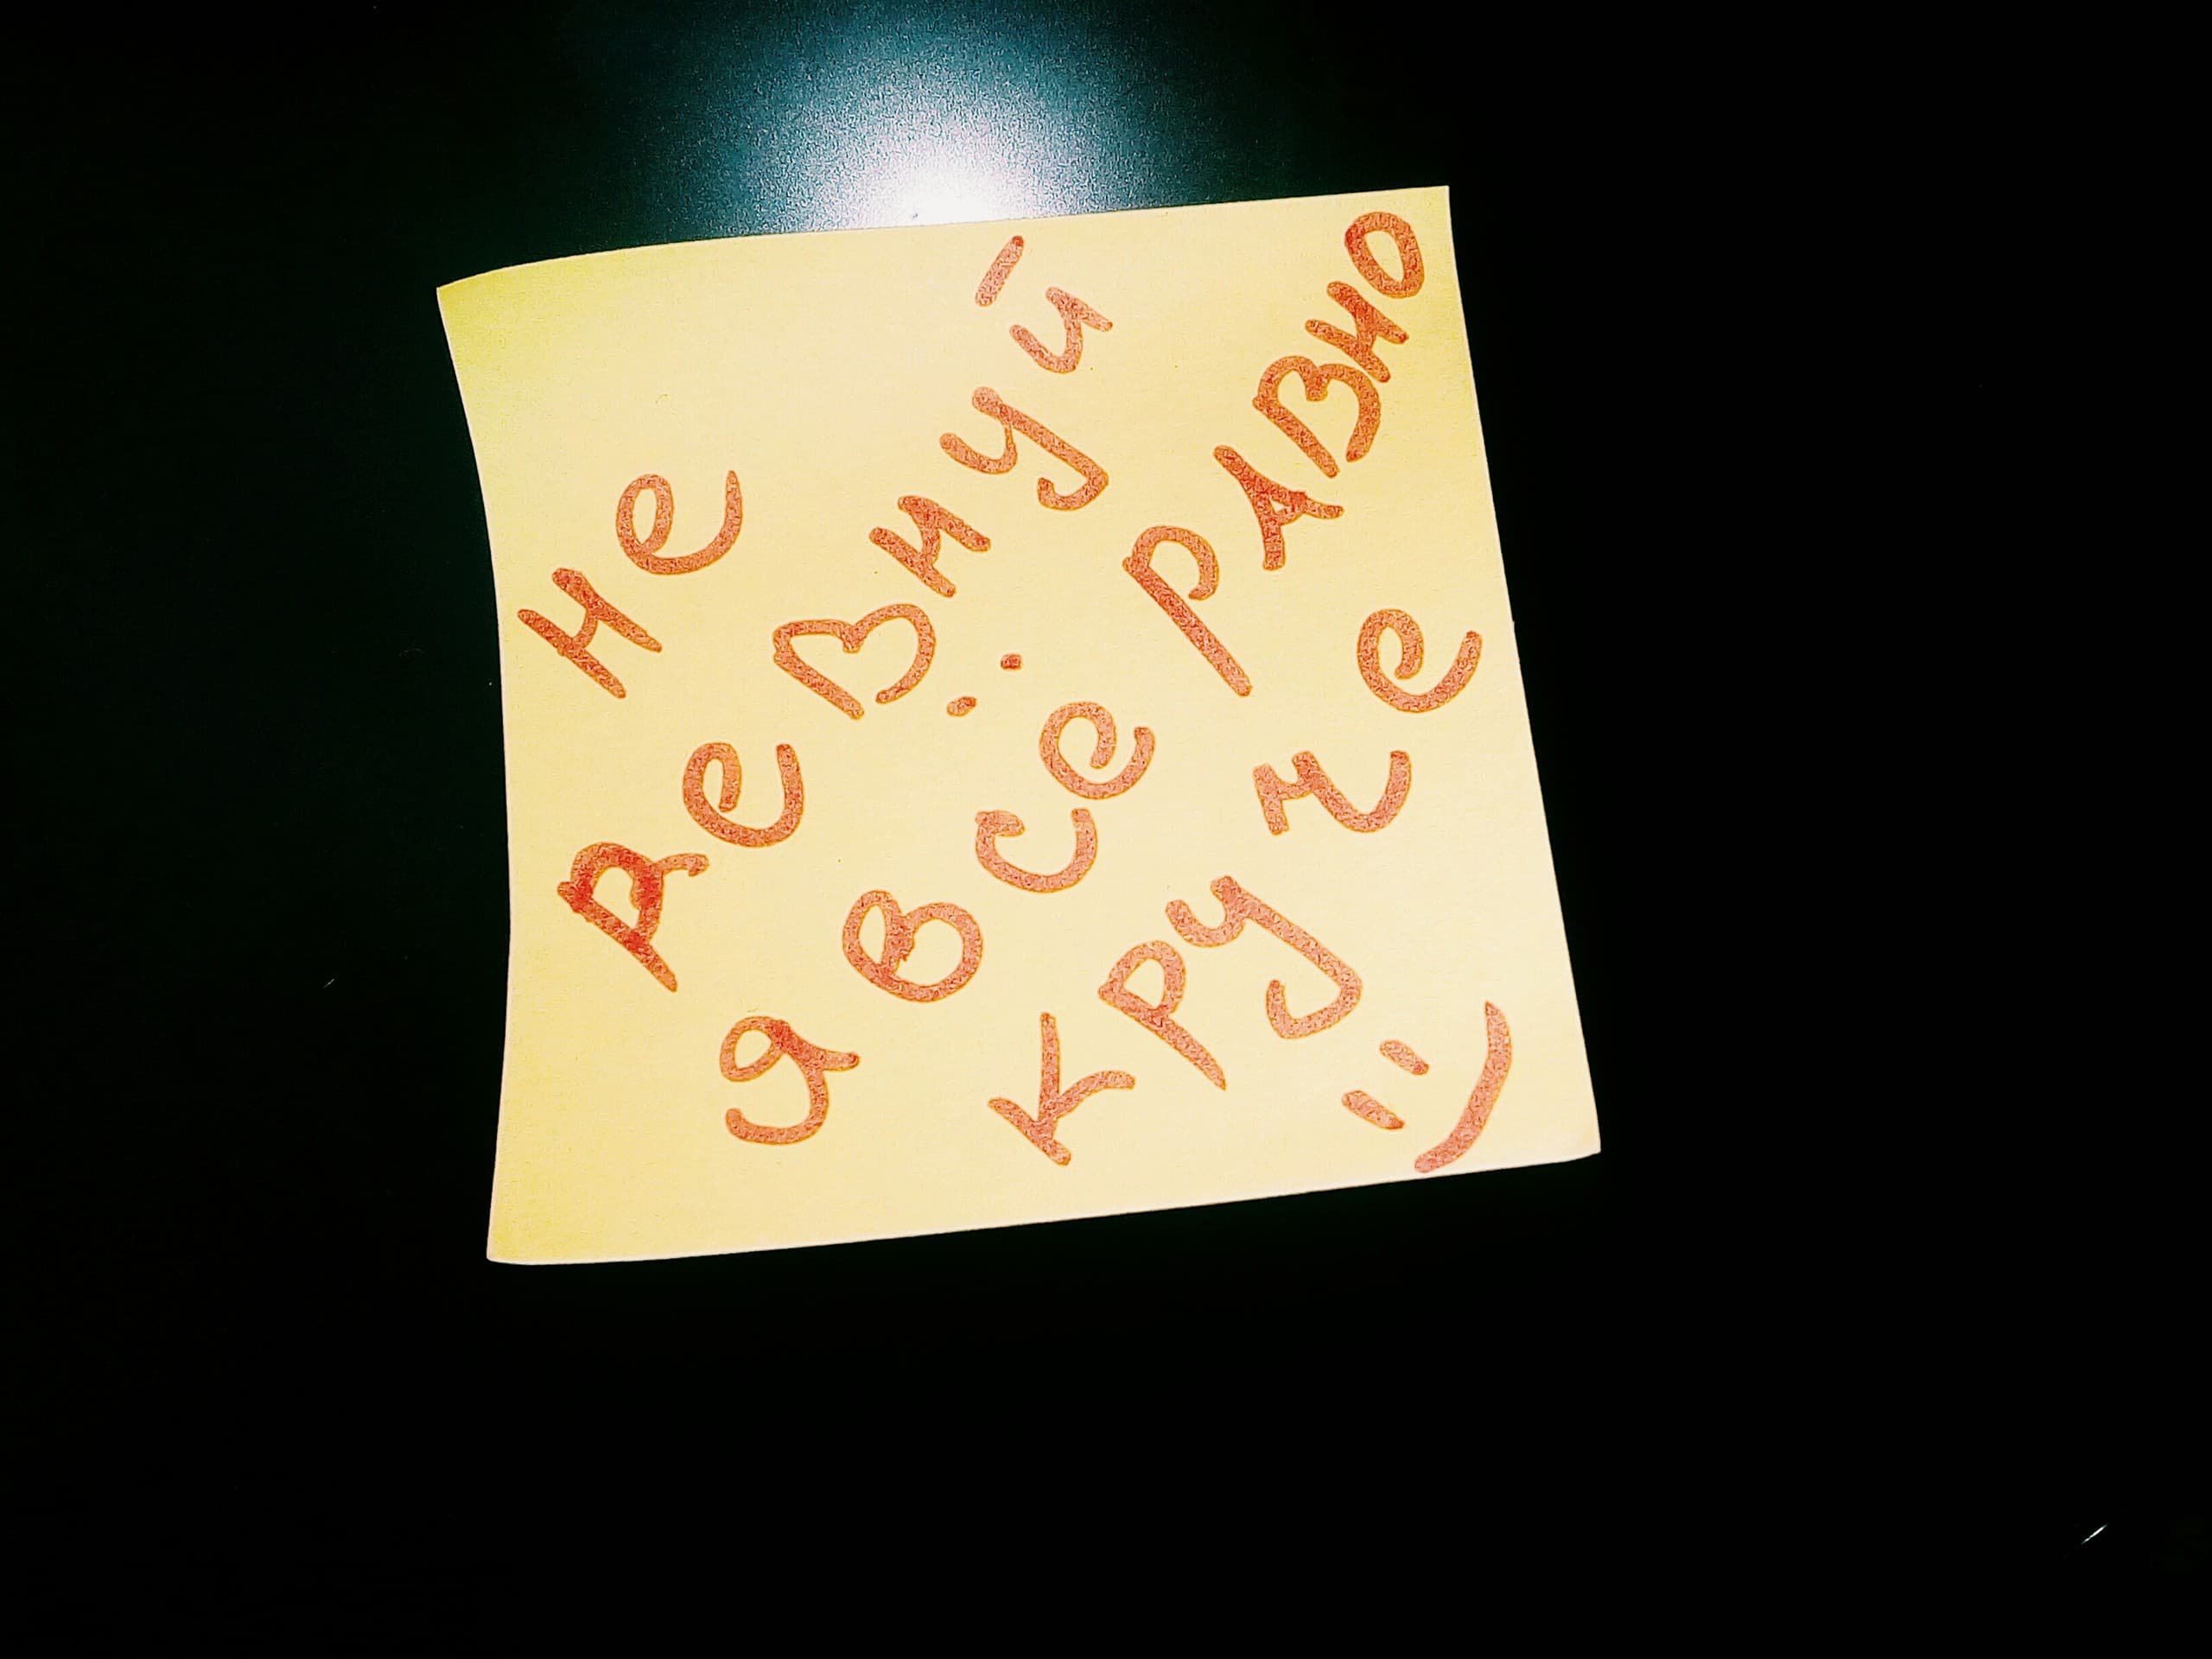 не
ревнуй
я всё рАВНО
круче
:)